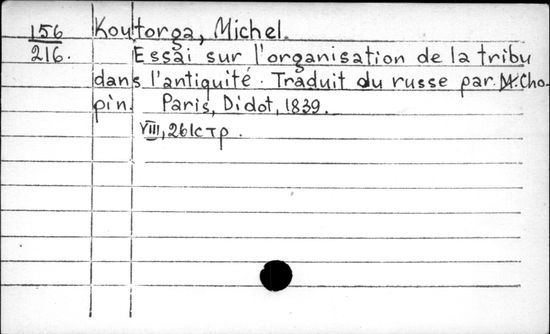 156
216.
Koutorga, Michel.
Essai sur l'organisation de la tribu
dans l'antiquité. Traduit du russe par M. Cho-
pin. Paris, Didot, 1839.
VIII, 261стр.